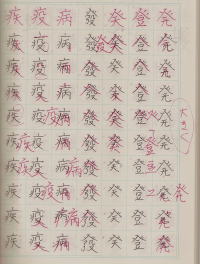 疾 疫 病 發 癸 登 発
疾 疫 病 發 癸 登 発
疾 疫 病 發 癸 登 発
疾 疫 病 發 癸 登 発
疾 疫 病 發 癸 登 発
疾 疫 病 發 癸 登 発
疾 疫 病 發 癸 登 発
疾 疫 病 發 癸 登 発
疾 疫 病 發 癸 登 発
疾 疫 病 發 癸 登 発
大きく